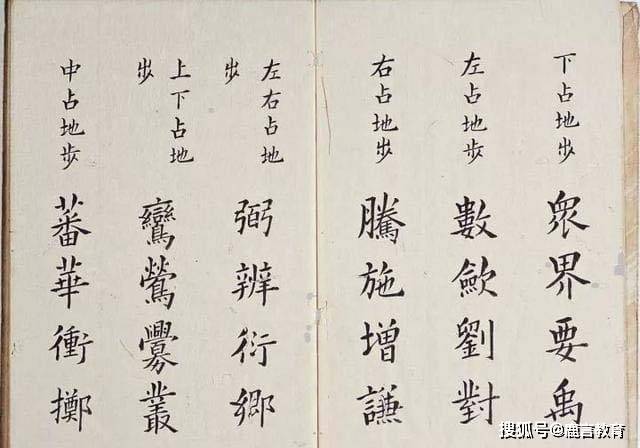 下占地步
眾界要禹
左占地步
數斂劉對
右占地步
騰施增謙
左右占地
步
弼辨衍鄉
上下占地
步
鸞鶯釁叢
中占地步
蕃華衝擲
搜狐号@鹿言教育